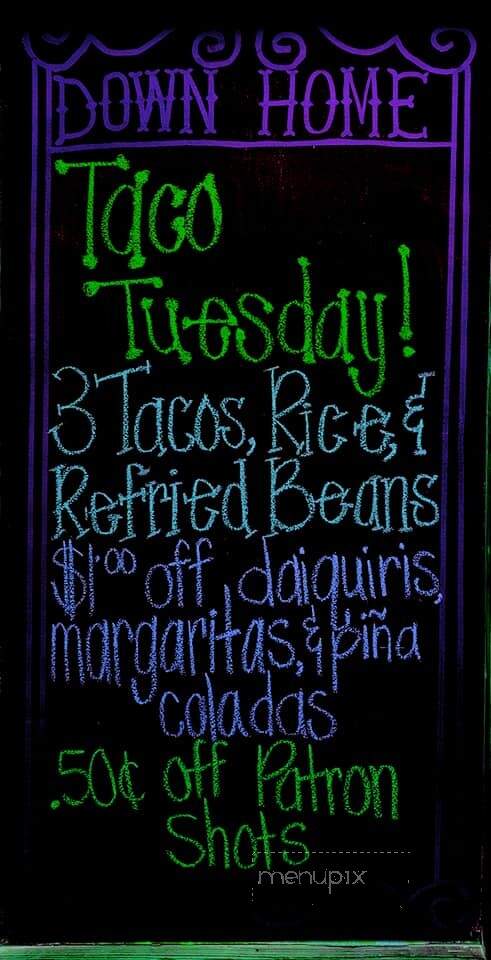 DOWN HOME
Taco
Tuesday!
3 Tacos, Rice, &
Refried Beans
$1.00 off daiquiris,
margaritas, & piña
coladas
.50¢ off Patron
Shots
menupix